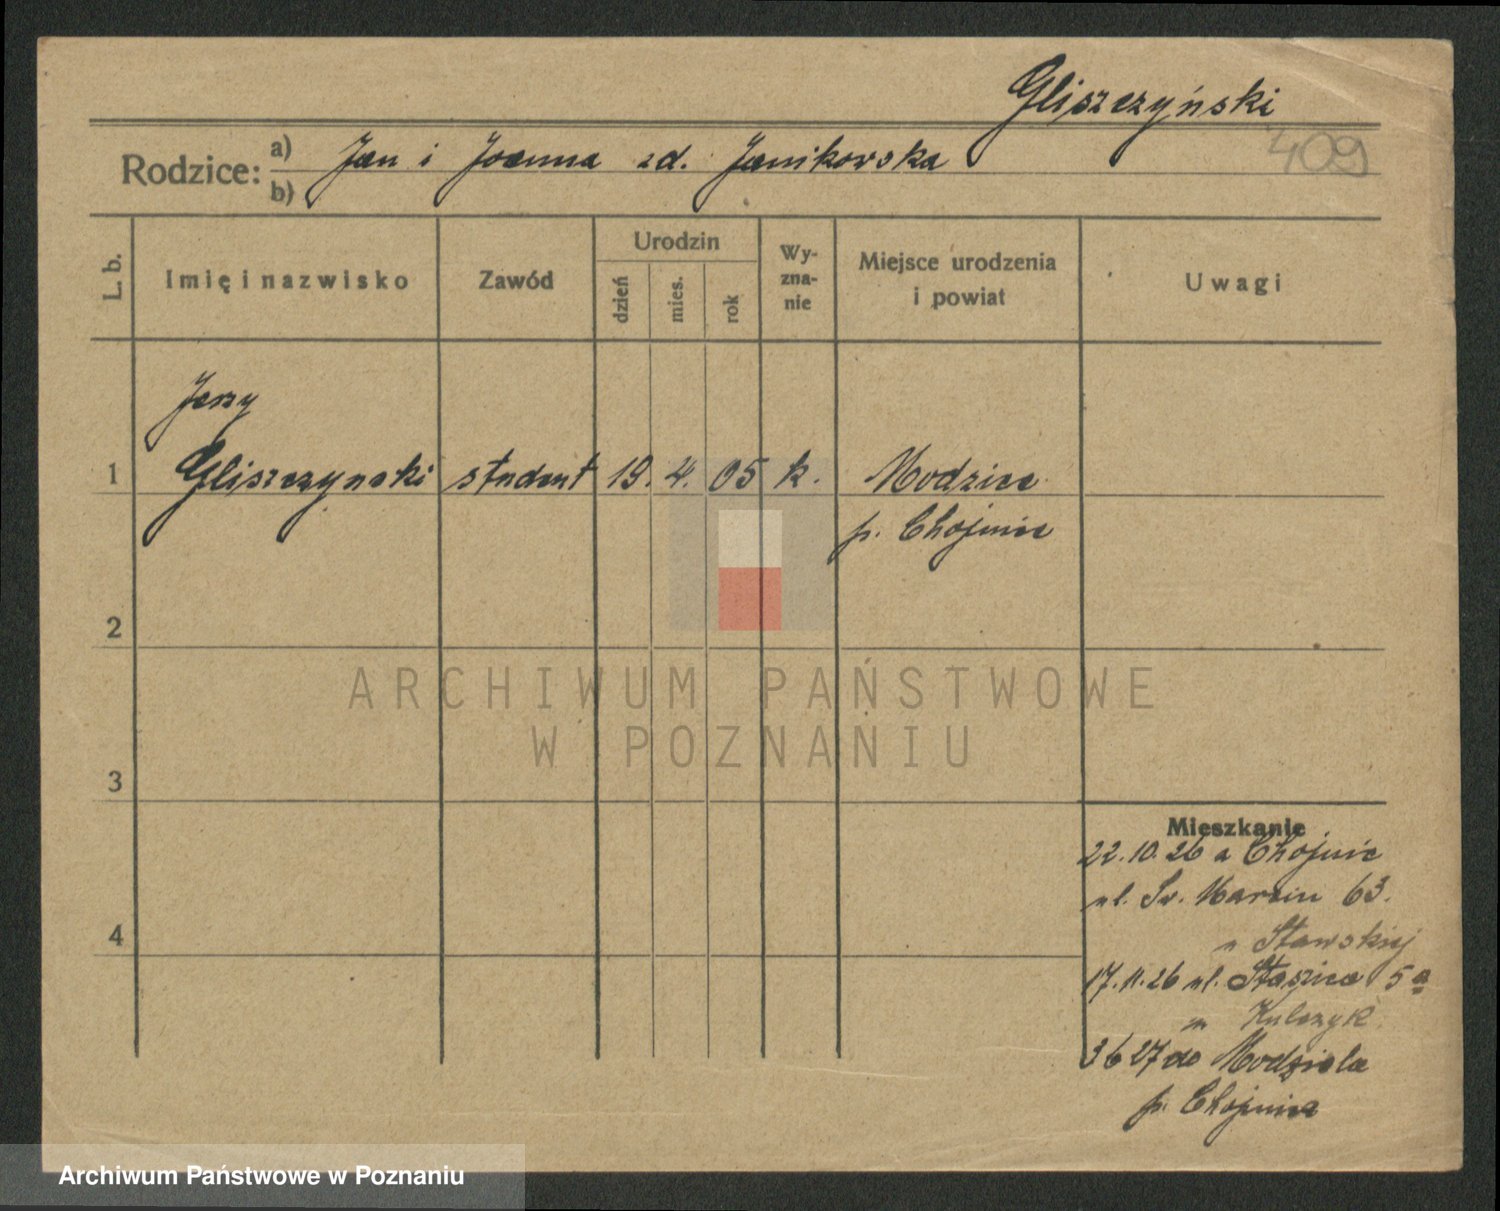 Gliszczyński
409
Rodzice: a) Jan i Joanna zd. Janikowska
b)
L. b.
Imię i nazwisko
Zawód
Urodzin
dzień
mies.
rok
Wy-
zna-
nie
Miejsce urodzenia
i powiat
Uwagi
Jerzy
1 Gliszczynski student 19. 4. 05 k. Modziel
p. Chojnice
2
3
4
ARCHIWUM PAŃSTWOWE
W POZNANIU
Mieszkanie
22.10.26 a Chojnic
ul. Św. Marcin 63.
u Stawskiej
17.11.26 ul. Staszica 5a
u Kulczyk
3 6 27 do Modziela
p. Chojnice
Archiwum Państwowe w Poznaniu